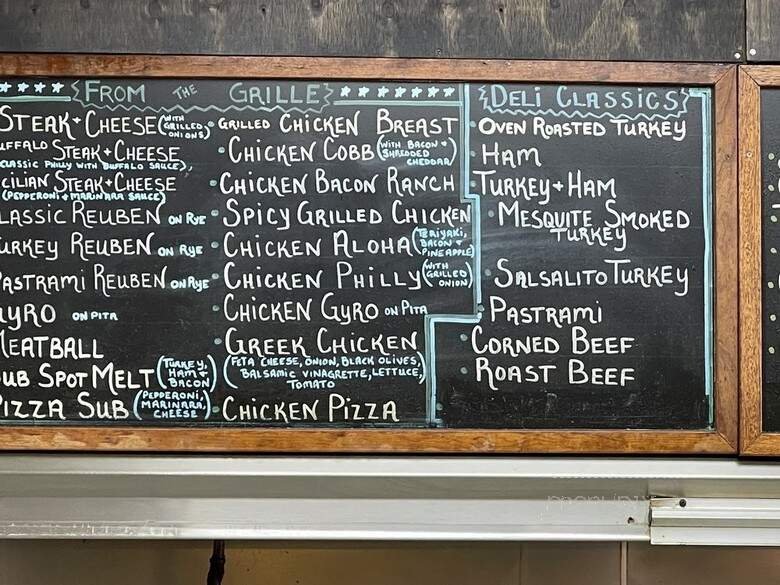 FROM THE GRILLE
STEAK + CHEESE (WITH GRILLED ONIONS)
UFFALO STEAK + CHEESE
CLASSIC PHILLY WITH BUFFALO SAUCE),
CILIAN STEAK + CHEESE
(PEPPERONI + MARINARA SAUCE)
LASSIC REUBEN ON RYE
URKEY REUBEN ON RYE
PASTRAMI REUBEN ON RYE
GYRO ON PITA
MEATBALL
SUB SPOT MELT (TURKEY, HAM + BACON)
PIZZA SUB (PEPPERONI, MARINARA, CHEESE)
• GRILLED CHICKEN BREAST
• CHICKEN COBB (WITH BACON + SHREDDED CHEDDAR)
• CHICKEN BACON RANCH
• SPICY GRILLED CHICKEN
• CHICKEN ALOHA (TERIYAKI, BACON + PINEAPPLE)
• CHICKEN PHILLY (WITH GRILLED ONION)
• CHICKEN GYRO ON PITA
• GREEK CHICKEN
(FETA CHEESE, ONION, BLACK OLIVES,
BALSAMIC VINAGRETTE, LETTUCE,
TOMATO
• CHICKEN PIZZA
DELI CLASSICS
• OVEN ROASTED TURKEY
• HAM
• TURKEY + HAM
• MESQUITE SMOKED
TURKEY
• SALSALITO TURKEY
• PASTRAMI
• CORNED BEEF
• ROAST BEEF